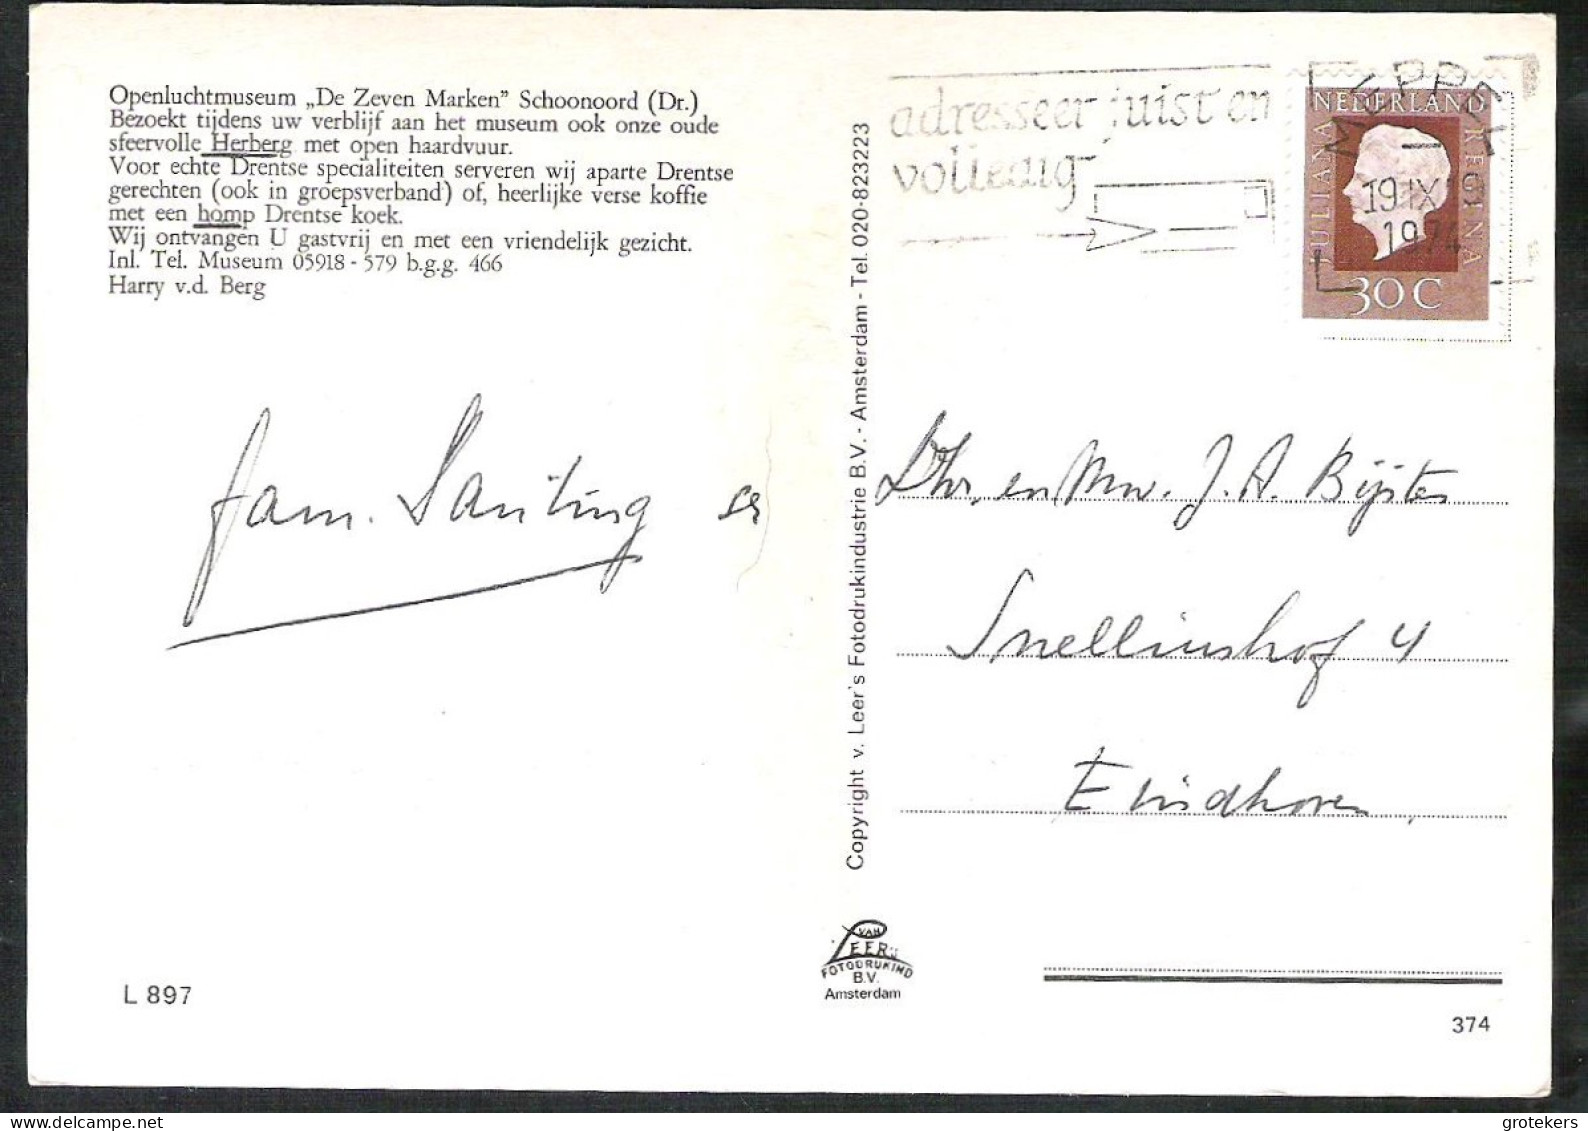 Openluchtmuseum „De Zeven Marken” Schoonoord (Dr.)
Bezoekt tijdens uw verblijf aan het museum ook onze oude
sfeervolle Herberg met open haardvuur.
Voor echte Drentse specialiteiten serveren wij aparte Drentse
gerechten (ook in groepsverband) of, heerlijke verse koffie
met een homp Drentse koek.
Wij ontvangen U gastvrij en met een vriendelijk gezicht.
Inl. Tel. Museum 05918 - 579 b.g.g. 466
Harry v.d. Berg
fam. Santing
L 897
Copyright v. Leer's Fotodrukindustrie B.V. - Amsterdam - Tel. 020-823223
VAN
LEER'S
FOTODRUKIND
B.V.
Amsterdam
adresseer juist en
volledig
MEPPEL
19 IX
1974
NEDERLAND
JULIANA
REGINA
30 C
Dhr. en Mw. J. A. Bijster
Snelliushof 4
Eindhoven
374
grotekers